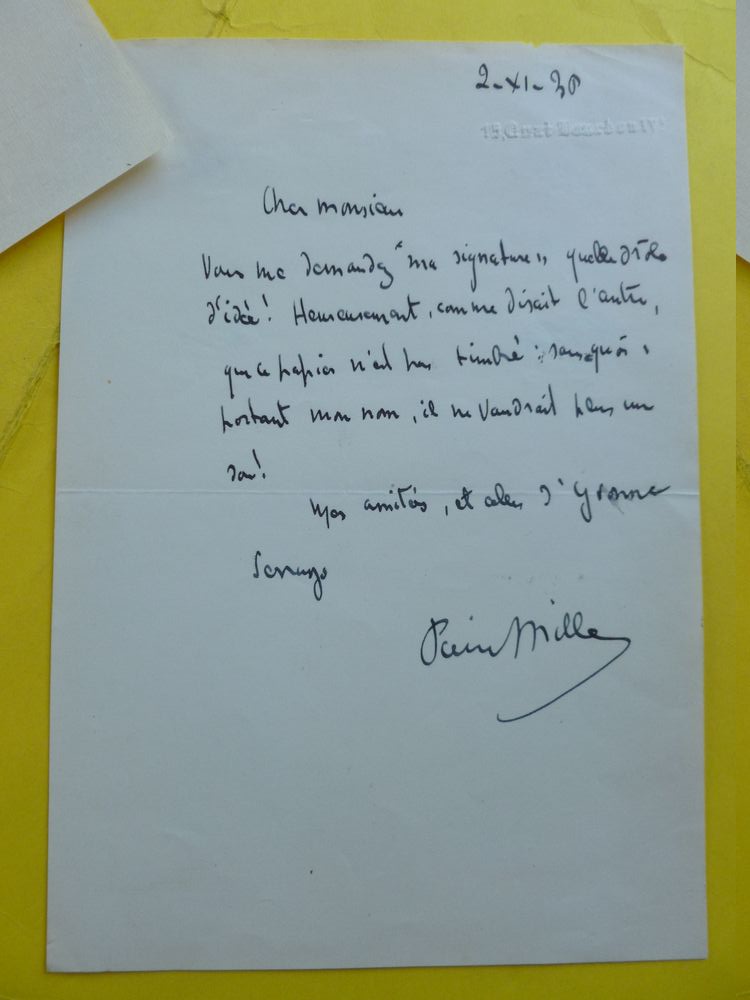 2-XI-30
15, Quai Bourbon IVe
Cher monsieur
Vous me demandez "ma signature", quelle drôle
d'idée! Heureusement, comme disait l'autre,
que ce papier n'est pas timbré : sans quoi,
portant mon nom, il ne vaudrait plus un
sou!
Mes amitiés, et celles d'Yvonne
Serruys
Pierre Mille